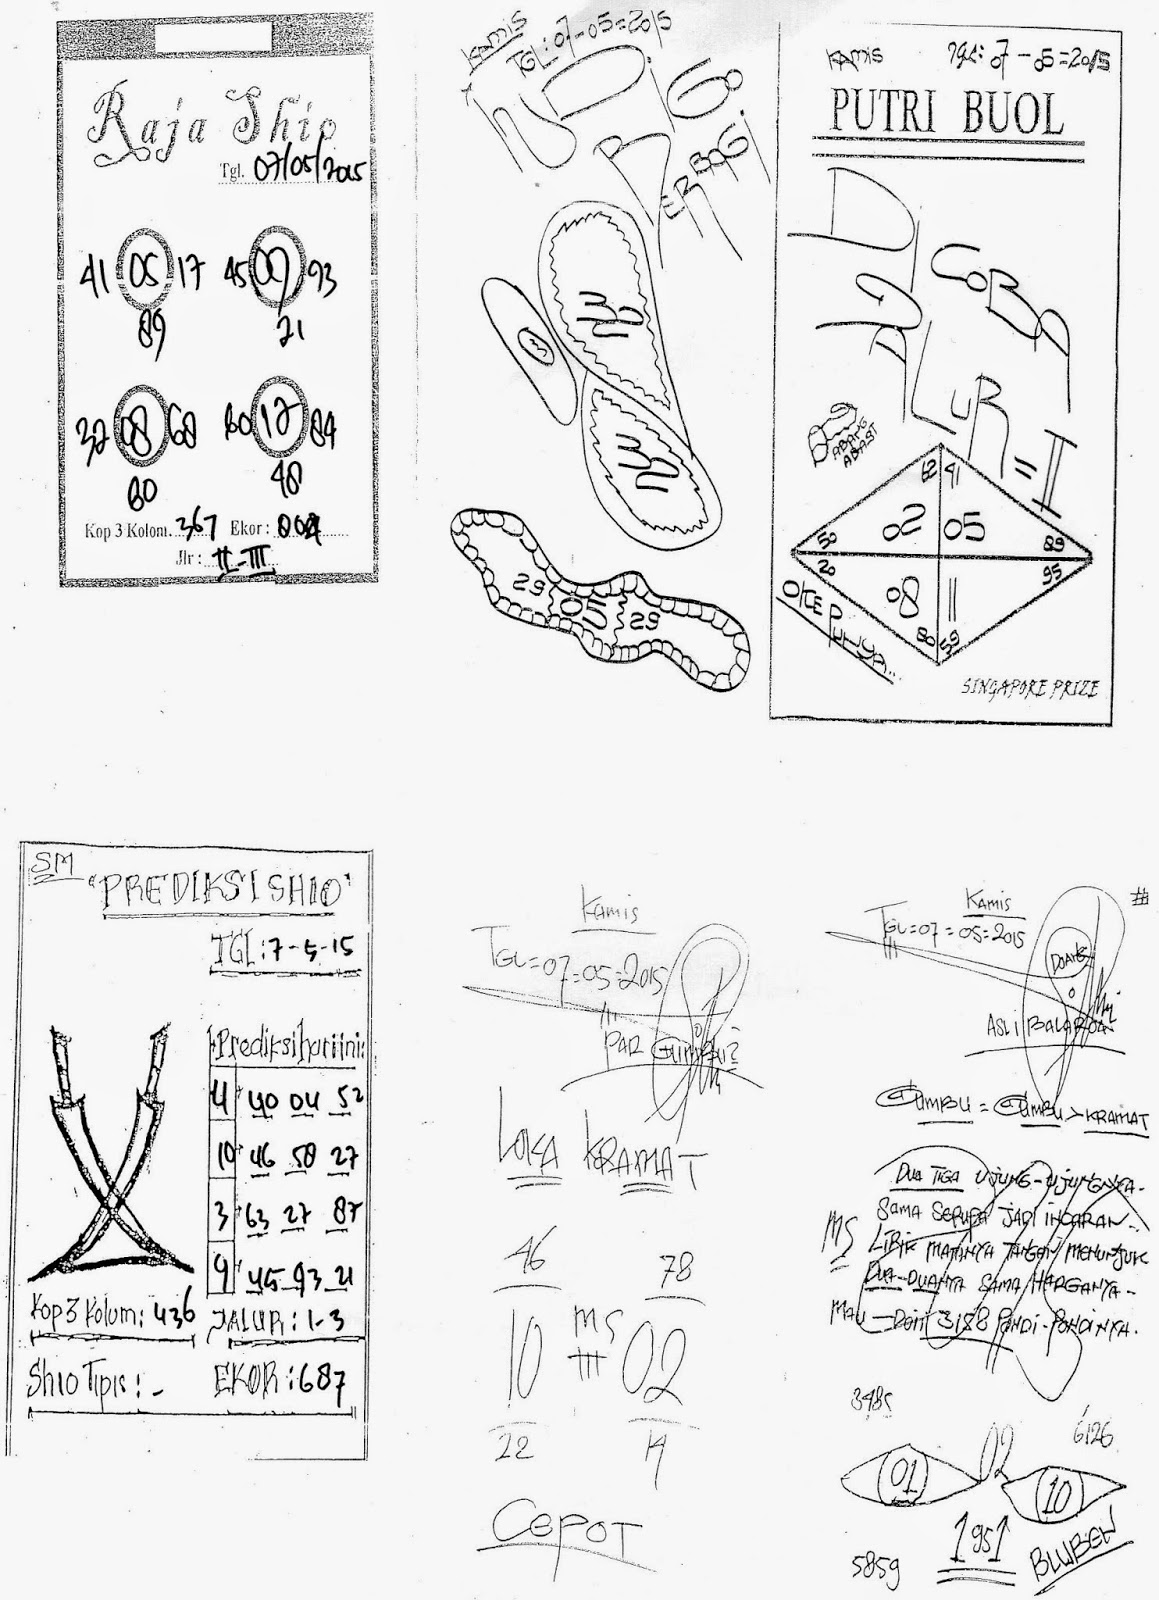 Raja Shio
Tgl. 07/05/2015
41 05 17 45 09 93
89 21
32 08 68 60 12 84
60 48
Kop 3 Kolom. 367 Ekor:
Jlr : II-III
Kamis
TGL: 07-05=2015
29 05 29
Kamis TGL: 07-05=2015
PUTRI BUOL
COBA
JALUR = II
ABANG
62 41
50 02 05 89
20 08 11 95
80 59
OKE PUNYA...
SINGAPORE PRIZE
SM
"PREDIKSI SHIO"
TGL: 7-5-15
Prediksi hari ini:
4 40 04 52
10 46 58 27
3 63 27 87
9 45 93 21
Kop 3 Kolom: 436 JALUR: 1-3
Shio Tipis: - EKOR: 687
Kamis
TGL=07=05=2015
PAR GUMBU?
LOKA KRAMAT
46 78
10 MS 02
22 14
CEPOT
Kamis #
TGL=07=05=2015
DOANG
ASLI BALAROA
GUMBU = GUMBU > KRAMAT
DUA TIGA UJUNG-UJUNGNYA-
SAMA SERUPA JADI INCARAN..
MS LIRIK MATANYA TANGAN MENUNJUK
DUA-DUANYA SAMA HARGANYA-
MAU-DOIT 3188 PANDI-PANDINYA.
3485 6126
01 02 10
1951
5859 BLUBEW